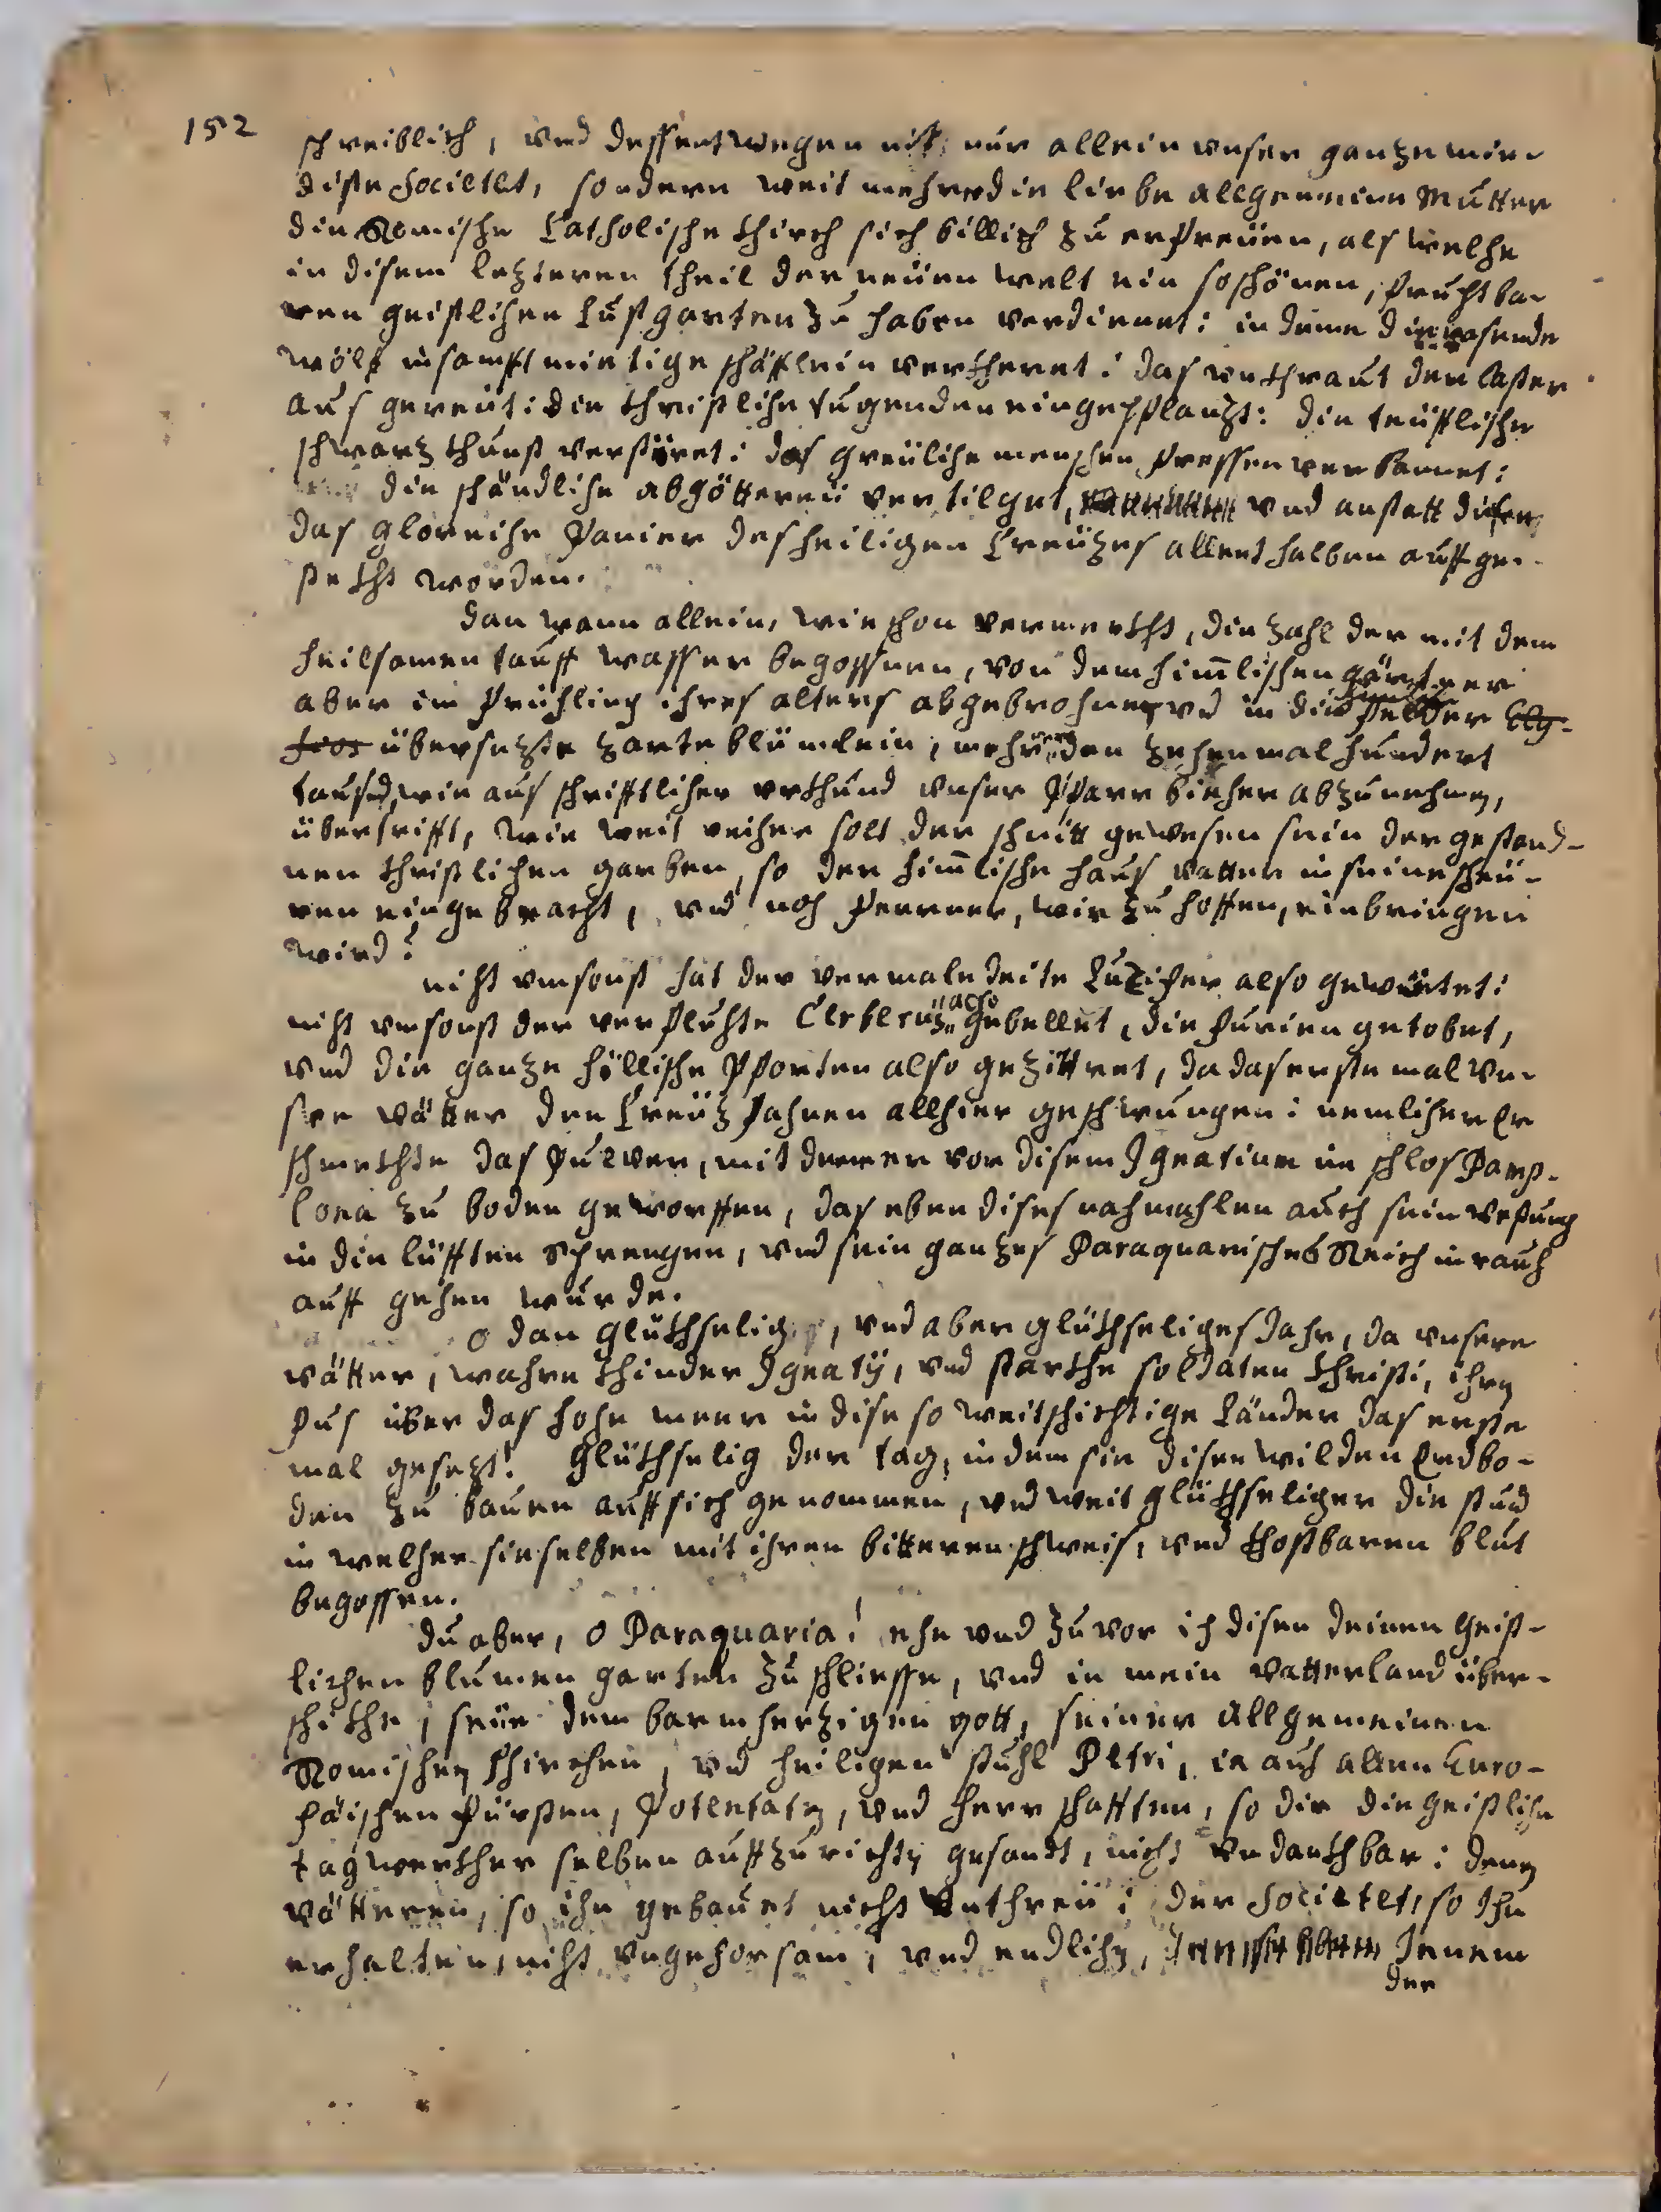 152
schreiblich, vnd dessentwegen nit nur allein vnser ganze min-
diste Societet, sondern weit mehrer die liebe allgemeine Mutter
die Römische Catholische Khirch sich billich zu erfreüen, als welche
in disem lezteren theil der neüen welt ein so schönen, fruchtba-
ren geistlichen Lustgarten zu haben verdienet: in deme die rasende
wölf in sanfftmietige schäfflein verkheret: das vnkhraut der laster
aus gereüt: die Christliche tugenden eingepflanzt: die teüfflische
schwarz khunst verstöret: das greüliche menschen fressen verbannet:
die schändliche abgöttereii vertilget, vnd anstatt disen
das glorreiche Panier des heiligen Creüzes allenthalben auffge-
stekht worden.
dan wann allein, wie schon vermerkht, die zahl der mit dem
heilsamen tauff wasser begossnen, von dem himlischen gärtner
aber im früchling ihres alters abgebrochnen, vnd in die felder Ely-
sios übersezte zarte blümlein, mehr den zehenmal hundert
tausend, wie aus schrifftlicher vrkhund vnser Pfarr biecher abzunehmen,
übertrifft, wie weit reicher solt der schnitt gewesen sein der gestand-
nen Christlichen garben, so der himlische haus vatter in seine scheü-
ren eingebracht, vnd noch ferner, wie zu hoffen, einbringen
wird?
nicht vmsonst hat der vermaledeite Luzifer also gewüetet:
nicht vmsonst der verfluchte Cerberus also gebellet, die furien getobet,
vnd die ganze höllische Pforten also gezittret, da das erste mal vn-
sere vätter den Creüz fahnen allhier geschwungen: nemlichen Er
schmekhte das Pulver, mit deme er vor disem Ignatium im schlos Pamp-
lona zu boden geworffen, das eben dises nachmahlen auch sein vestung
in die lüfften sprengen, vnd sein ganzes Paraquarisches Reich in rauch
auff gehen wurde.
o dan glükhselig, vnd aber glükhseliges Jahr, da vnsere
vätter, wahre khinder Ignatÿ, vnd starkhe soldaten Christi, ihren
fus über das hohe meer in dise so weitschichtige Länder das erste
mal gesezt! Glükhselig der tag, in dem sie disen wilden Erdbo-
den zu bauen auff sich genommen, vnd weit glükhseliger die stund
in welcher sie selben mit ihren bitteren schweis, vnd khostbaren blut
begossen.
du aber, o Paraquaria! ehe vnd zuvor ich disen deinen Geist-
lichen blumen garten zuschliesse, vnd in mein vatterland über-
schikhe, seÿe dem barmherzigen gott, seiner allgemeinen
Römischen Khirchen, vnd heiligen stuhl Petri, ia auch allen Euro-
päischen fürsten, Potentaten, vnd herrschafften, so dir die geistliche
tagwerkher selben auffzurichten gesandt, nicht vndankhbar: denen
vätteren, so ihn gebauet nicht vnthreü: der Societet, so Ihn
erhalten, nicht vngehorsam, vnd endlichen, Jenem
der